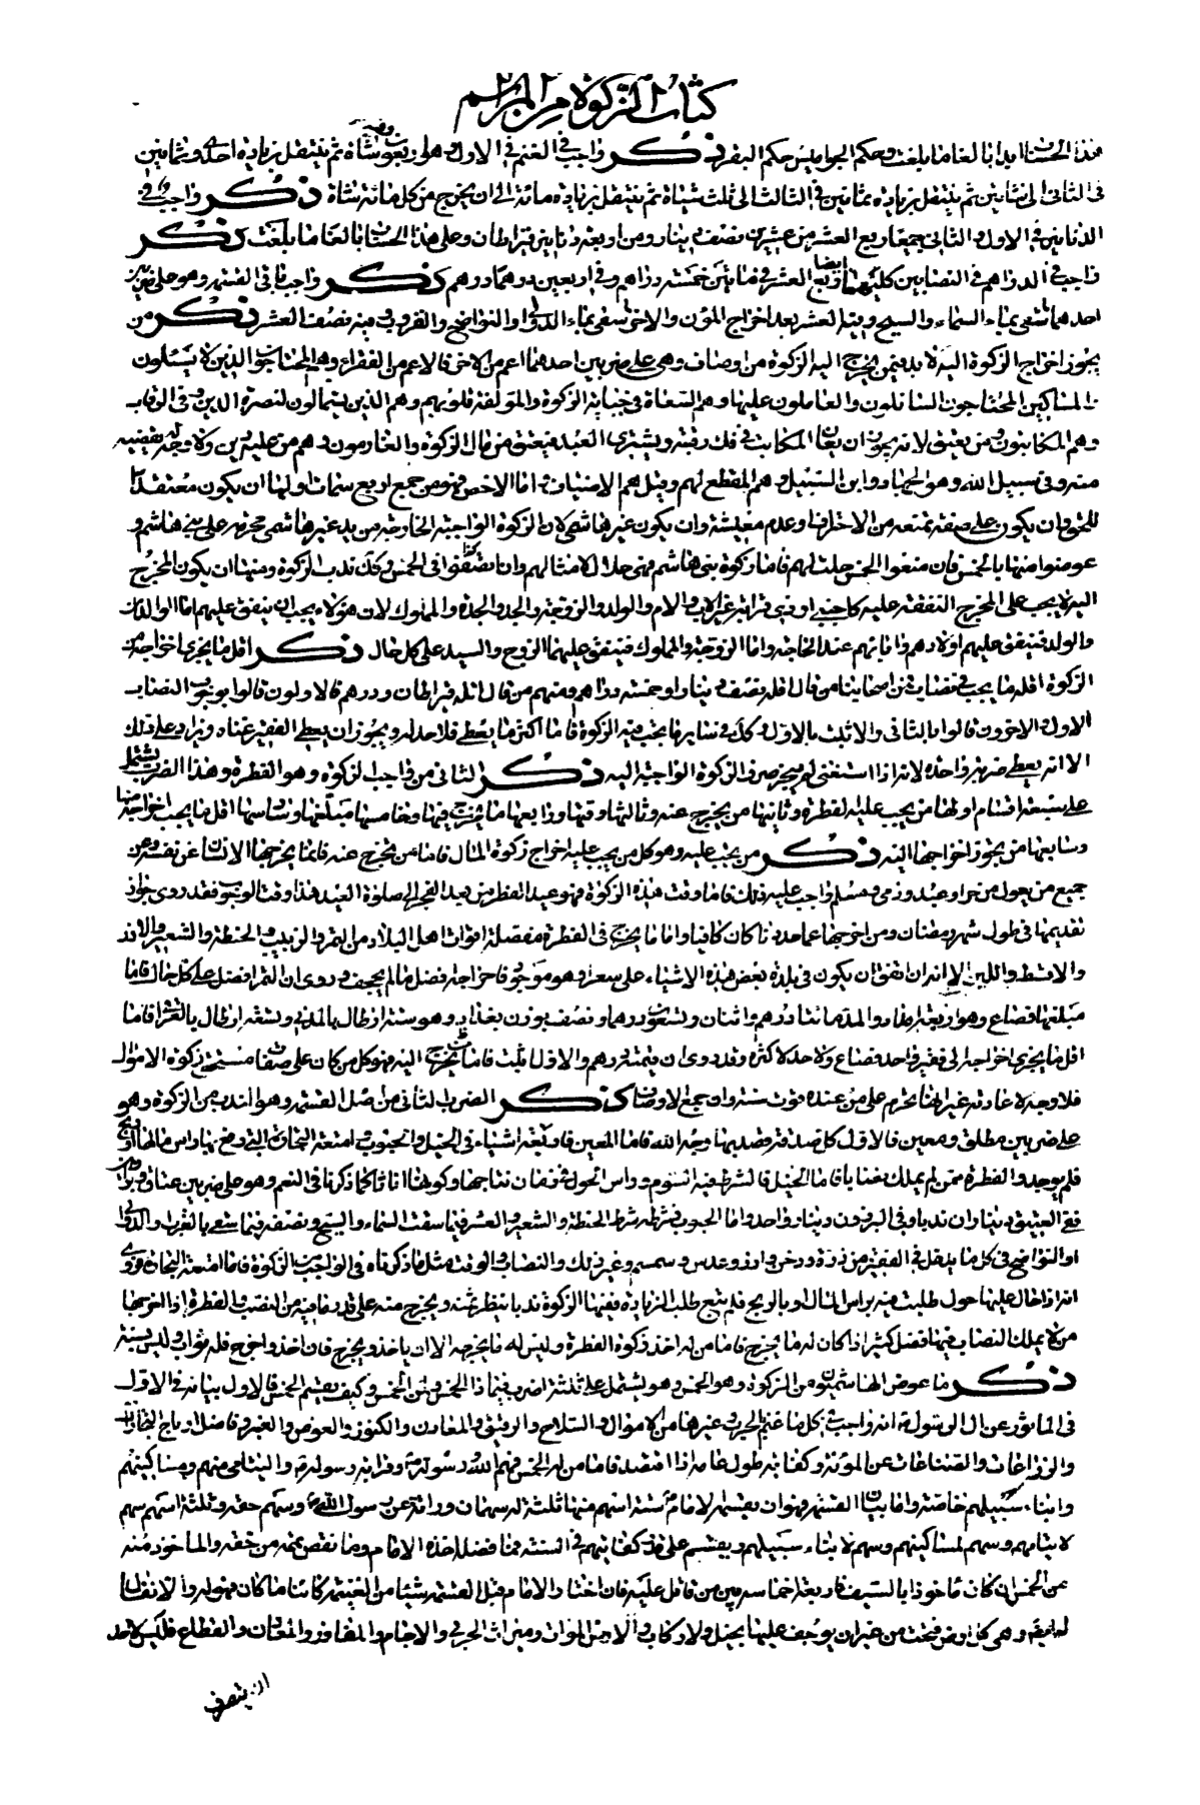 كتاب الزكوة من المراسم
هذا الحساب ابدا بالغا ما بلغت وحكم الجواميس حكم البقر ذكر واجب في الغنم في الاول وهو اربعون شاة ثم ينتقل بزيادة احدى وثمانين
في الثاني الى شاتين ثم ينتقل بزيادة ثمانين في الثالث الى ثلث شياة ثم ينتقل بزيادة مائة الى ان يخرج من كل مائة شاة ذكر واجب في
الدنانير في الاول والثاني جميعا ربع العشر من عشرين نصف دينار ومن اربعة دنانير قيراطان وعلى هذا الحساب بالغا ما بلغت ذكر
واجب في الدراهم في النصابين كليهما ايضا ربع العشر في مائتين خمسة دراهم وفي اربعين درهما درهم ذكر واجب في القسمة وهو على ضربين
احدهما سقي بماء السماء والسيح وفيه العشر بعد اخراج المؤن والاخر سقي بماء الدوالي والنواضح والغروب وفيه نصف العشر ذكر من
يجوز اخراج الزكوة اليه لا بد فيمن يخرج اليه الزكوة من اوصاف وهي على ضربين احدهما اعم من الاخر فالاعم من الفقراء وهم المحتاجون الذين لا يسئلون
والمساكين المحتاجون السائلون والعاملون عليها وهم السعاة في جباية الزكوة والمؤلفة قلوبهم وهم الذين يستمالون لنصرة الدين وفي الرقاب
وهم المكاتبون ومن يعتق لانه يجوز ان يعان المكاتب في فك رقبته ويشترى العبد فيعتق من مال الزكوة والغارمون وهم من عليه دين ولا وجه له يقضيه
منه وفي سبيل الله وهو الجهاد وابن السبيل وهم المنقطع بهم وقيل هم الاضياف اما الاخص فهو من جمع اربع سمات اولها ان يكون معتقدا
للحق وان يكون على صفة تمنعه من الاحتراف وعدم معيشة وان يكون غير هاشمي لان الزكوة الواجبة الخارجة من يد غير هاشمي محرمة على بني هاشم و
عوضوا منها بالخمس فان منعوا الخمس حلت لهم فاما زكوة بني هاشم فهي حلال لامثالهم وان تصرفوا في الخمس وكذلك ندب الزكوة ومنها ان يكون المخرج
اليه لا يجب على المخرج النفقة عليه كاجنبي او ذي قرابة غير الاب والام والولد والزوجة والجد والجدة والمملوك لان هؤلاء يجب ان ينفق عليهم اما الوالدان
والولد فينفق عليهم اولادهم واباؤهم عند الحاجة واما الزوجة والمملوك فينفق عليهما الزوج والسيد على كل حال ذكر اقل ما يجزي اخراجه من
الزكوة اقله ما يجب في نصاب فمن اصحابنا من قال اقله نصف دينار او خمسة دراهم ومنهم من قال اقله قيراطان ودرهم فالاولون قالوا بوجوب النصاب
الاول والاخرون قالوا بالثاني والاثبت بالاول وكذلك في سائر ما تجب فيه الزكوة فاما اكثر ما يعطى فلا حد له ويجوز ان يعطى الفقير غناه ويزاد على ذلك
الا انه يعطى ضربة واحدة لانه اذا استغنى لم يجز صرف الزكوة الواجبة اليه ذكر الثاني من واجب الزكوة وهو الفطرة وهذا الضرب يشتمل
على سبعة اقسام اولها من يجب عليه الفطرة وثانيها من يخرج عنه وثالثها وقتها ورابعها ما يخرج فيها وخامسها مبلغها وسادسها اقل ما يجب اخراجه منها
وسابعها من يجوز اخراجها اليه ذكر من يجب عليه وهو كل من يجب عليه اخراج زكوة المال فاما من يخرج عنه فانما يخرجها الانسان عن نفسه وعن
جميع من يعول من حر او عبد وذمي ومسلم واجب عليه ذلك فاما وقت هذه الزكوة فهو عيد الفطر من بعد الفجر الى صلوة العيد هذا وقت الوجوب فقد روي جواز
تقديمها في طول شهر رمضان ومن اخرجها عما حددناه كان قاضيا واما ما يخرج في الفطرة مفصلة اقوات اهل البلاد من التمر والزبيب والحنطة والشعير والارز
والاقط واللبن الا انه ان اتفق ان يكون في بلدة بعض هذه الاشياء على سعرا وهو موجود فاخراجه افضل ما لم يجحف وروي ان التمر افضل على كل حال فاما
مبلغها فصاع وهو اربعة امداد والمد مائتا درهم واثنان وتسعون درهما ونصف بوزن بغداد وهو ستة ارطال بالمدني وتسعة ارطال بالعراقي فاما
اقل ما يجزي اخراجه الى فقير واحد فصاع ولا حد لاكثره وقد روي ان قيمته درهم والاول اثبت فاما من تخرج اليه فهو كل من كان على صفات مستحق زكوة الاموال
فلا وجه لاعادته غير انها تحرم على من عنده قوت سنة وان جمع الاوصاف ذكر الضرب الثاني من اصل القسمة وهو الندب من الزكوة وهو
على ضربين مطلق ومعين فالاول كل صدقة قصد بها وجه الله فاما المعين فاربعة اشياء في الخيل والحبوب وامتعة التجارات التي دفع بها راس مالها او الربح
فلم يوجد والفطرة ممن لم يملك نصابا فاما الخيل فالشرط فيه السوم وراس الحول وفيه ان نتاجها وكونها اناثا كما ذكرنا في النعم وهو على ضربين عتاق وبراذين
ففي العتيق ديناران ندبا وفي البرذون دينار واحد واما الحبوب فشرطه شرط الحنطة والشعير والعشر فيما سقت السماء والسيح ونصفه فيما سقي بالغرب والدوالي
او النواضح في كل ما يدخل في القفيز من ذرة ودخن وارز وعدس وسمسم وغير ذلك والنصاب والوقت مثل ما ذكرناه في الواجب من الزكوة فاما امتعة التجارة فروي
انه اذا حال عليها حول طلبت فيه براس المال او بالربح فلم تبع طلب الزيادة ففيها الزكوة ندبا ينتظر ثمنه ويخرج منه على قدر ما فيه من النصب والفطرة اذا اخرجها
من لا يملك النصاب فيها فضل كثير اذا كان له ما يخرج فاما من له اخذ زكوة الفطرة وليس له ما يخرجه الا ان ياخذ ويخرج فان اخذ واخرج فله ثواب وليس بسنة
ذكر ما عوض الهاشميون من الزكوة وهو الخمس وهو يشتمل على ثلثة اضرب فيما ذا الخمس ولمن الخمس وكيف يقسم الخمس فالاول بيانه في الاول
في الماثور عن ال الرسول انه واجب في كل ما غنم بالحرب وغيرها من الاموال والسلاح والرقيق والمعادن والكنوز والغوص والعنبر وفاضل ارباح التجارات
والزراعات والصناعات عن المؤنة وكفاية طول عامه اذا اقتصد فاما من له الخمس فهم الله ورسوله وقرابة رسوله واليتامى منهم ومساكينهم
وابناء سبيلهم خاصة واما بيان القسمة فهو ان يقسمه الامام ستة اسهم منها ثلثة له سهمان وراثة عن رسول الله وسهم حقه وثلثة اسهم سهم
لايتامهم وسهم لمساكينهم وسهم لابناء سبيلهم ويقسم على قدر كفايتهم في السنة فما فضل اخذه الامام وما نقص تممه من حقه والماخوذ منه
عن الخمس ان كان ماخوذا بالسيف فاربعة اخماسه بين من قاتل عليه فان اختار الامام قبل القسمة شيئا من الغنيمة كائنا ما كان فهو له والانفال
له ايضا وهي كل ارض فتحت من غير ان يوجف عليها بخيل ولا ركاب والارض الموات وميراث الحربي والاجام والمفاوز والمعادن والقطائع فليس لاحد
ان يتصرف